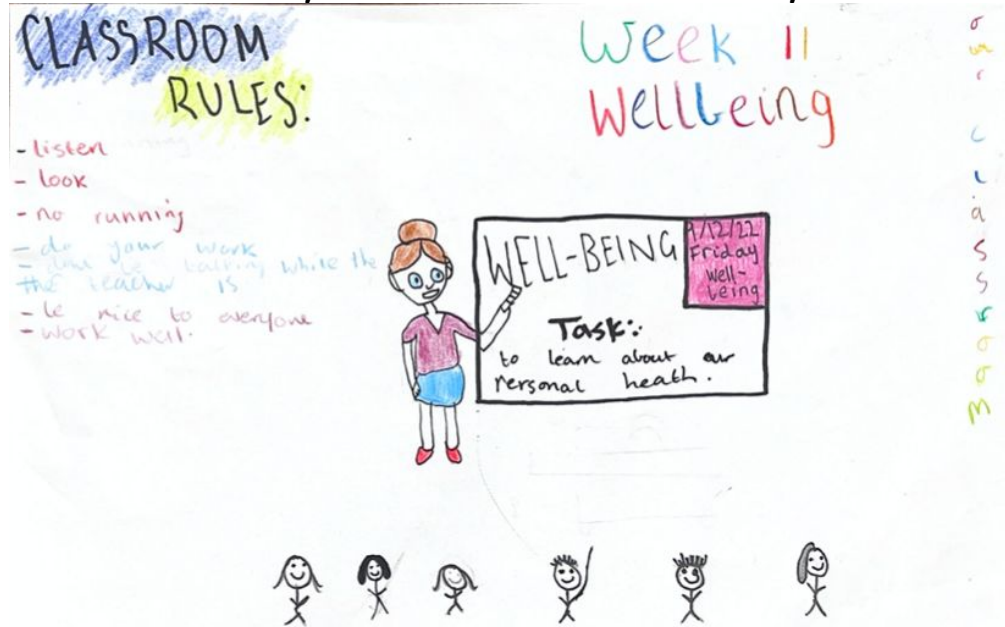 CLASSROOM
RULES:
- listen
- look
- no running
- do your work
- dont be talking while the
the teacher is
- be nice to everyone
- work well.
Week 11
Wellbeing
WELL-BEING
9/12/22
Friday
Well-
being
Task:
to learn about our
personal heath.
our classroom